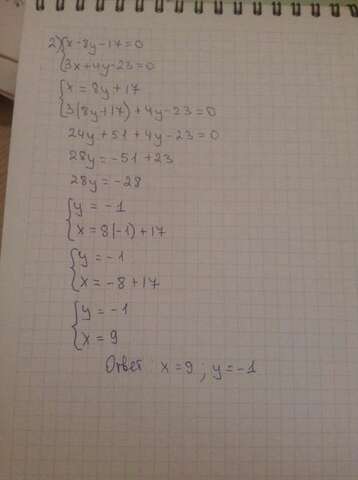 2) {x-8y-17=0
3x+4y-23=0
{x=8y+17
3(8y+17)+4y-23=0
24y+51+4y-23=0
28y=-51+23
28y=-28
{y=-1
x=8(-1)+17
{y=-1
x=-8+17
{y=-1
x=9
Ответ x=9; y=-1